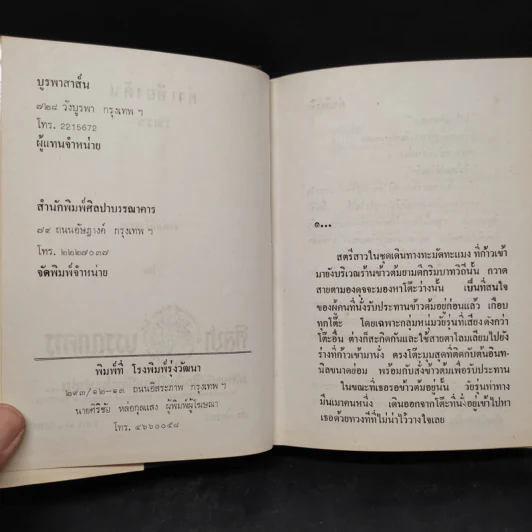 บูรพาสาส์น
๗๒๘ วังบูรพา กรุงเทพ ฯ
โทร. 2215672
ผู้แทนจำหน่าย
สำนักพิมพ์ศิลปาบรรณาคาร
๗๙ ถนนอัษฎางค์ กรุงเทพ ฯ
โทร. ๒๒๒๗๐๓๗
จัดพิมพ์จำหน่าย
พิมพ์ที่ โรงพิมพ์รุ่งวัฒนา
๒๙๓/๑๒-๑๓ ถนนอิสระภาพ กรุงเทพ ฯ
นายศิริชัย หล่อกุลแสง ผู้พิมพ์ผู้โฆษณา
โทร. ๔๖๖๐๐๕๘
๑...
สตรีสาวในชุดเดินทางทะมัดทะแมง ที่ก้าวเข้า
มายังบริเวณร้านข้าวต้มยามตีกริมบาทวิถีนั้น กวาด
สายตามองดุจจะมองหาโต๊ะว่างนั้น เป็นที่สนใจ
ของผู้คนที่นั่งรับประทานข้าวต้มอยู่ก่อนแล้ว เกือบ
ทุกโต๊ะ โดยเฉพาะกลุ่มหนุ่มวัยรุ่นที่เสียงดังกว่า
โต๊ะอื่น ต่างก็สะกิดกันและใช้สายตาโลมเลียมไปยัง
ร่างที่ก้าวเข้ามานั่ง ตรงโต๊ะมุมสุดที่ติดกับต้นอินท-
นิลขนาดย่อม พร้อมกับสั่งข้าวต้มเพื่อรับประทาน
ในขณะที่เธอรอข้าวต้มอยู่นั้น วัยรุ่นท่าทาง
มึนเมาคนหนึ่ง เดินออกจากโต๊ะที่นั่งอยู่เข้าไปหา
เธอด้วยทวงทีที่ไม่น่าไว้วางใจเลย